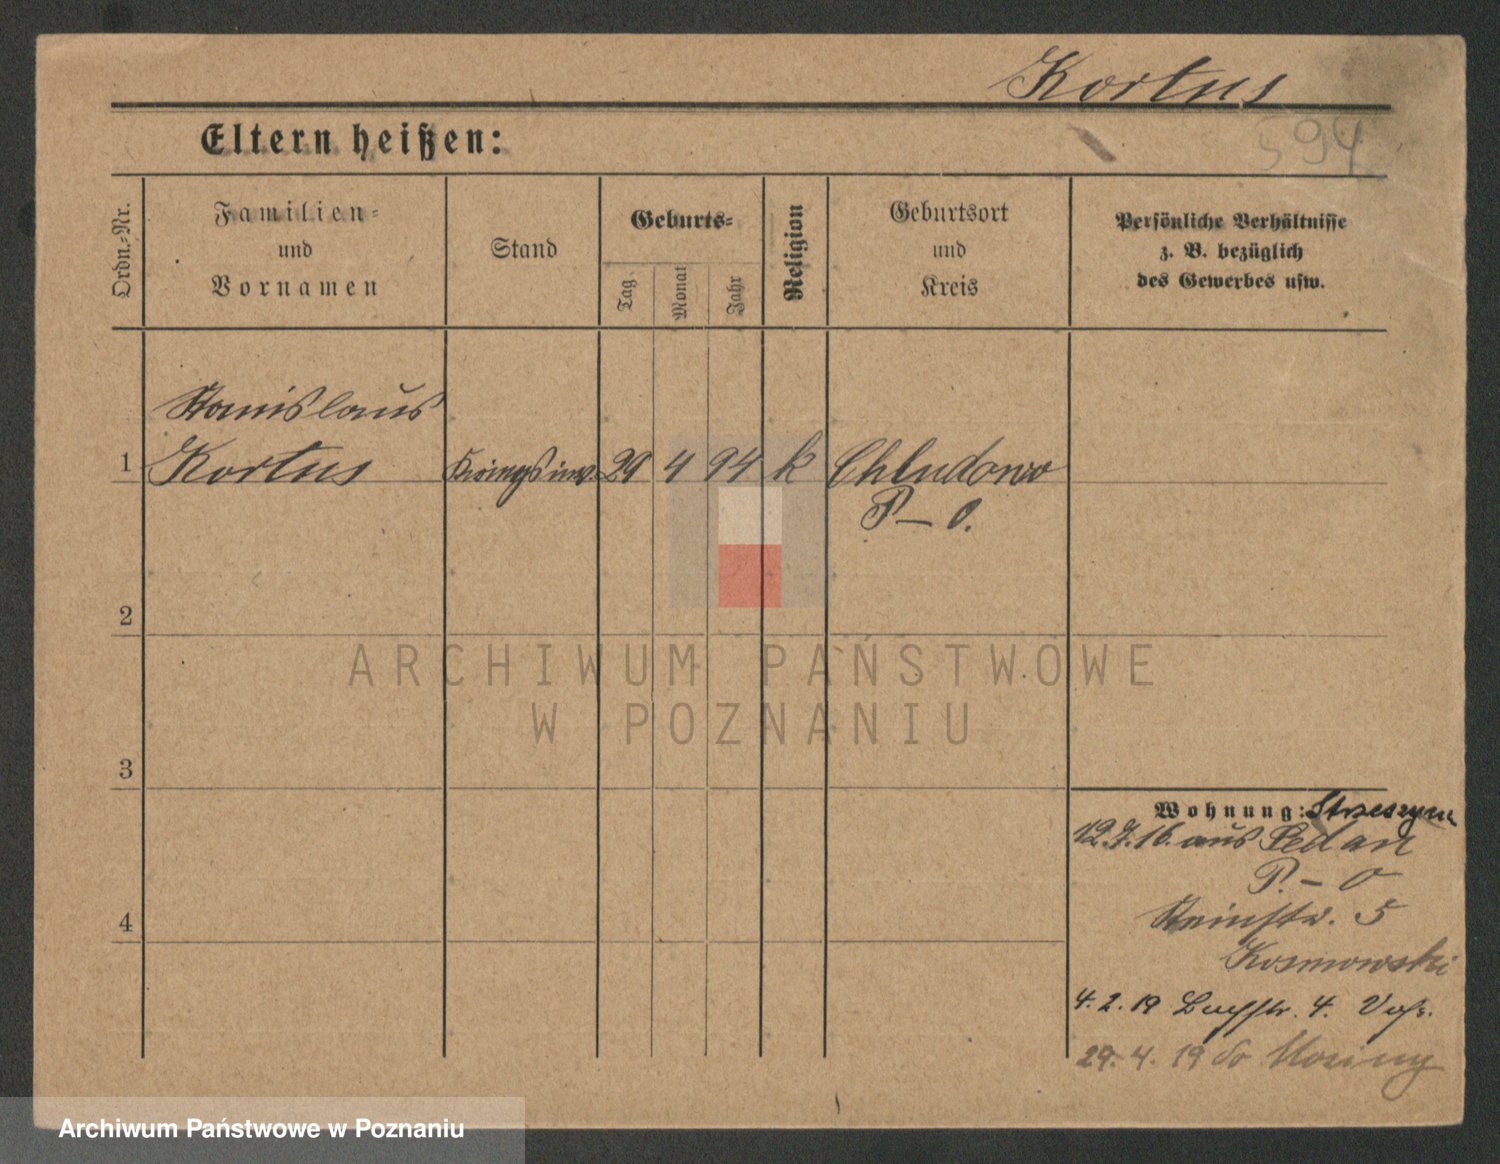 Kortus
594
Eltern heißen:
Ordn.-Nr.
Familien-
und
Vornamen
Stand
Geburts-
Tag
Monat
Jahr
Religion
Geburtsort
und
Kreis
Persönliche Verhältnisse
z. B. bezüglich
des Gewerbes usw.
Stanislaus
1 Kortus Kriegsinv. 29 4 94 k Chludowo
P – O.
2
ARCHIWUM PAŃSTWOWE
W POZNANIU
3
Wohnung: Strzeszyn
12.7.16. aus Sedan
P. – O
Steinstr. 5
Kosmowski
4.2.19 Bachstr. 4.
29.4.19 do Mosiny
4
Archiwum Państwowe w Poznaniu